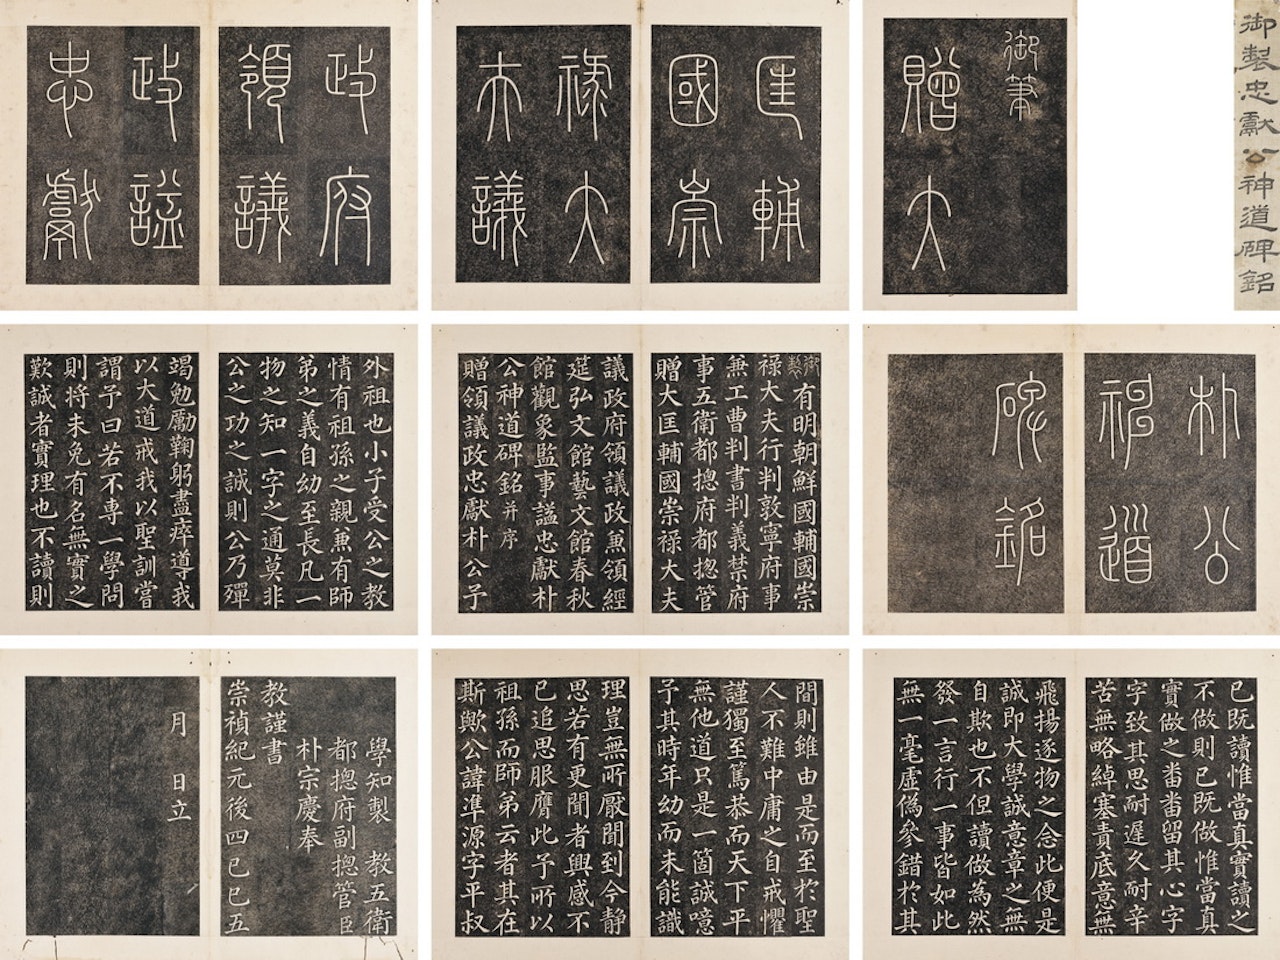 御製忠獻公神道碑銘
御筆
贈大
匡輔
國崇
祿大
夫議
政府
領議
政諡
忠獻
朴公
神道
碑銘
御製有明朝鮮國輔國崇
祿大夫行判敦寧府事
兼工曹判書判義禁府
事五衛都摠府都摠管
贈大匡輔國崇祿大夫
議政府領議政兼領經
筵弘文館藝文館春秋
館觀象監事諡忠獻朴
公神道碑銘并序
贈領議政忠獻朴公予
外祖也小子受公之教
情有祖孫之親兼有師
弟之義自幼至長凡一
物之知一字之通莫非
公之功之誠則公乃殫
竭勉勵鞠躬盡瘁導我
以大道戒我以聖訓嘗
謂予曰若不專一學問
則將未免有名無實之
歎誠者實理也不讀則
已既讀惟當真實讀之
不做則已既做惟當真
實做之畨畨留其心字
字致其思耐遲久耐辛
苦無略綽塞責底意無
飛揚逐物之念此便是
誠即大學誠意章之無
自欺也不但讀做為然
發一言行一事皆如此
無一毫虛偽參錯於其
間則雖由是而至於聖
人不難中庸之自戒懼
謹獨至篤恭而天下平
無他道只是一箇誠噫
予其時年幼而未能識
理豈無所厭聞到今靜
思若有更聞者興感不
已追思服膺此予所以
祖孫而師弟云者其在
斯歟公諱準源字平叔
學知製　教五衛
都摠府副摠管臣
朴宗慶奉
教謹書
崇禎紀元後四己巳五
月　日立